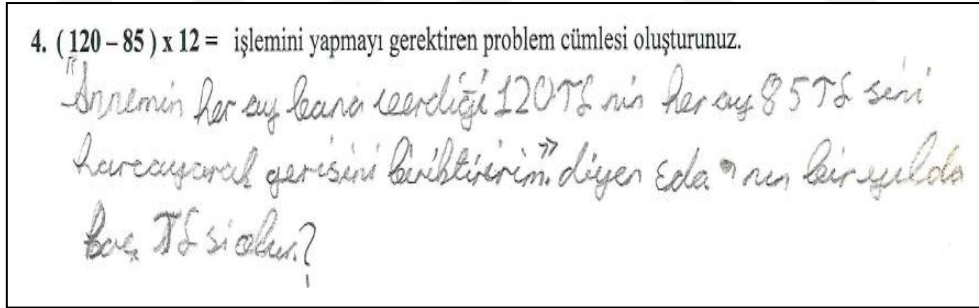 4. ( 120 – 85 ) x 12 = işlemini yapmayı gerektiren problem cümlesi oluşturunuz.
"Annemin her ay bana verdiği 120 TL nin her ay 85 TL sini
harcayarak gerisini biriktiririm." diyen Eda'nın bir yılda
kaç TL si olur?